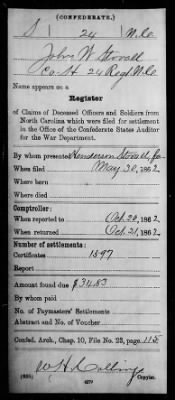 (CONFEDERATE.)
S 24 N.C.
John W Stovall
Co. H 24 Regt N.C.
Name appears on a
Register
of Claims of Deceased Officers and Soldiers from
North Carolina which were filed for settlement
in the Office of the Confederate States Auditor
for the War Department.
By whom presented Henderson Stovall, fa
When filed May 30, 1862
Where born
Where died
Comptroller:
When reported to Oct. 20, 1862
When returned Oct. 21, 1862
Number of settlements:
Certificates 1597
Report
Amount found due $34.83
By whom paid
No. of Paymasters' Settlements
Abstract and No. of Voucher
Confed. Arch., Chap. 10, File No. 25, page 115
W H Collins
Copyist.